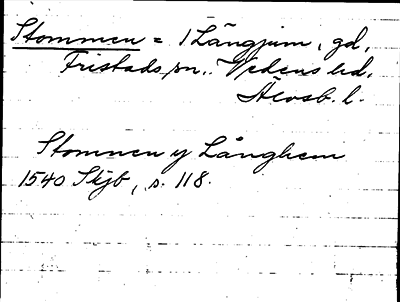 Stommen = 1 Långjum, gd,
Fristads sn., Vedens hd,
Älvsb. l.
Stommen y Långhem
1540 Skjb, s. 118.